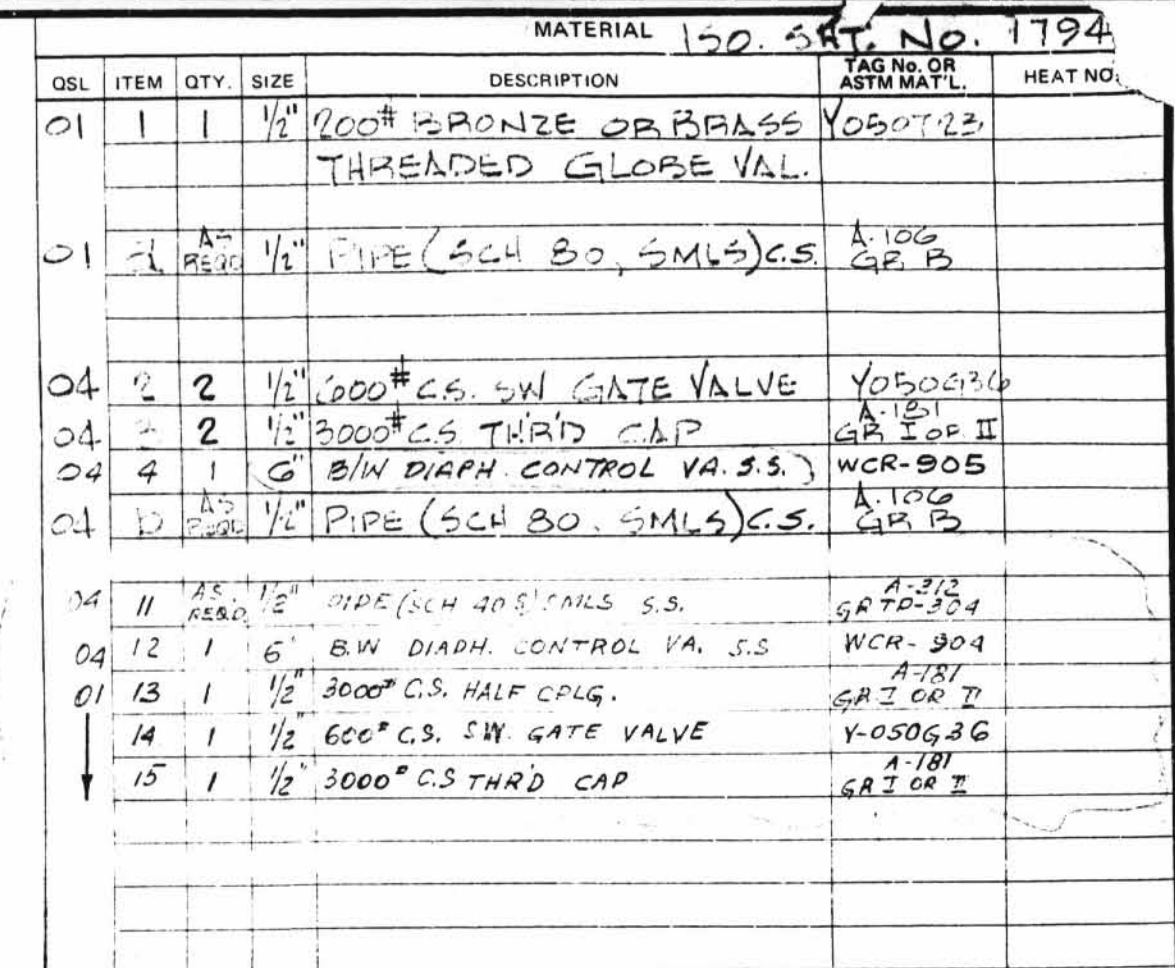 MATERIAL ISO. SHT. No. 1794
QSL ITEM QTY. SIZE DESCRIPTION TAG No. OR ASTM MAT'L. HEAT NO.
01 1 1 1/2" 200# BRONZE OR BRASS Y050T23
THREADED GLOBE VAL.
01 AS REQD 1/2" PIPE (SCH 80, SMLS) C.S. A-106 GR B
04 2 2 1/2" 600# C.S. SW GATE VALVE Y050G36
04 3 2 1/2" 3000# C.S. THR'D CAP A-181 GR I OR II
04 4 1 6" B/W DIAPH. CONTROL VA. S.S. WCR-905
04 AS REQD 1/2" PIPE (SCH 80, SMLS) C.S. A-106 GR B
04 11 AS REQD 1/2" PIPE (SCH 40 S) SMLS S.S. A-312 GR TP-304
04 12 1 6" B.W DIAPH. CONTROL VA. S.S WCR-904
01 13 1 1/2" 3000# C.S. HALF CPLG. A-181 GR I OR II
14 1 1/2 600# C.S. SW. GATE VALVE Y-050G36
15 1 1/2" 3000# C.S THR'D CAP A-181 GR I OR II